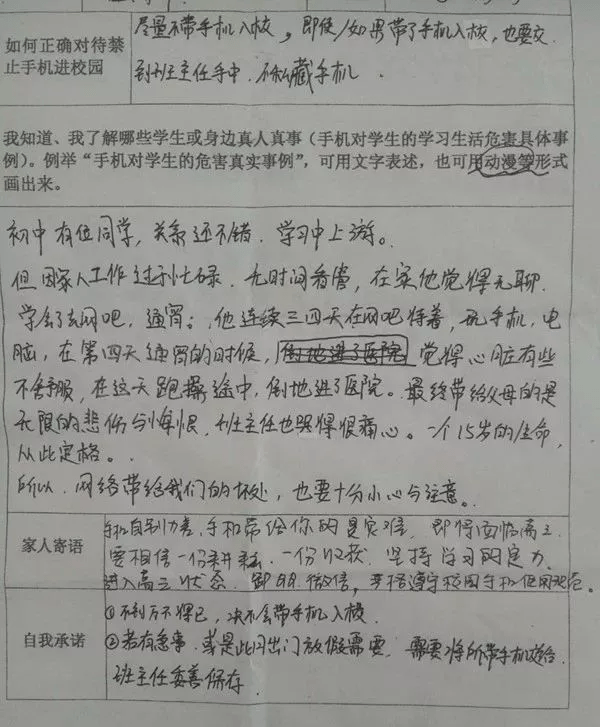 如何正确对待禁
止手机进校园
尽量不带手机入校，即使/如果带了手机入校，也要交
到班主任手中．不私藏手机．
我知道、我了解哪些学生或身边真人真事（手机对学生的学习生活危害具体事
例）。例举“手机对学生的危害真实事例”，可用文字表述，也可用动漫等形式
画出来。
初中有位同学，关系还不错．学习中上游。
但因家人工作过于忙碌．无时间看管，在家他觉得无聊．
学会了去网吧，通宵；他连续三四天在网吧待着，玩手机，电
脑，在第四天通宵的时候，倒地进了医院 觉得心脏有些
不舒服，在这天跑操途中，倒地进了医院。最终带给父母的是
无限的悲伤与悔恨．班主任也哭得很痛心。一个15岁的生命，
从此定格。
所以．网络带给我们的坏处，也要十分小心与注意。
家人寄语
手机自制力差，手机带给你的是灾难．即将面临高三
要相信一份耕耘．一份收获．坚持学习的定力．
进入高三状态．卸QQ．微信，严格遵守校园手机使用规范。
自我承诺
①不到万不得已，决不会带手机入校．
②若有急事．或是出门放假需要．需要将所带手机送给
班主任妥善保存．